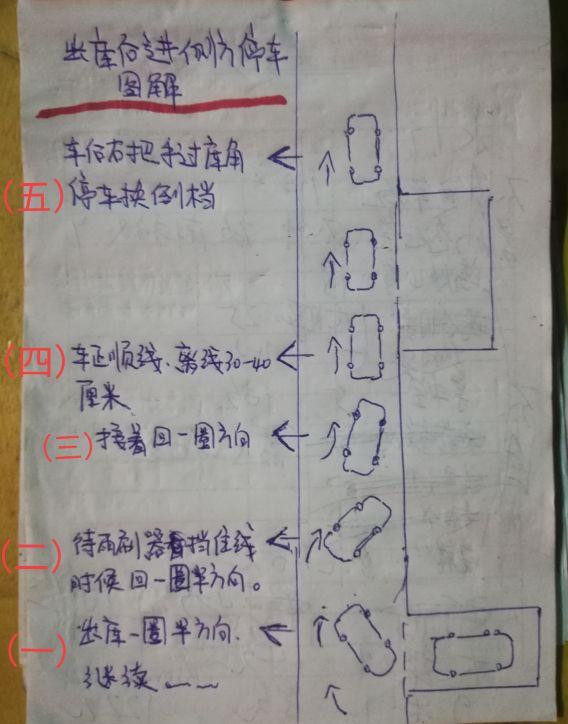 出库后进侧方停车
图解
车后右把手过库角
(五) 停车换倒档
(四) 车正顺线、离线30-40
厘米
(三) 接着回一圈方向
(二) 待雨刷器挡住线
时候回一圈半方向。
(一) 出库一圈半方向、
继续……